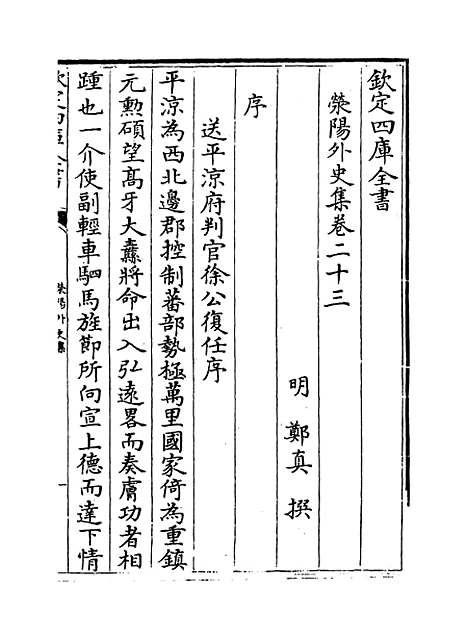 欽定四庫全書
滎陽外史集卷二十三
明 鄭真 撰
序
送平涼府判官徐公復任序
平涼為西北邊郡控制蕃部勢極萬里國家倚為重鎮
元勲碩望髙牙大纛將命出入弘遠畧而奏膚功者相
踵也一介使副輕車駟馬旌節所向宣上德而達下情
欽定四庫全書
滎陽外史集
一